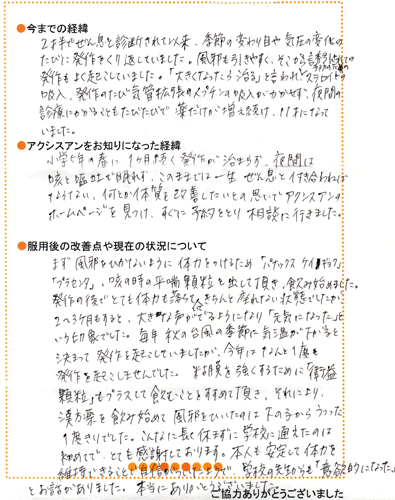 ●今までの経緯
2才半でぜん息と診断されて以来、季節の変わり目や気圧の変化の
たびに発作をくり返していました。風邪も引きやすく、そこから誘発されての
発作もよく起こしていました。「大きくなったら治る」と言われ ステロイドの
吸入、発作のたび気管拡張の 吸入がかかせず、夜間の
診療にかかることもたびたびで 薬だけが増え続け、11才になって
いました。
●アクシスアンをお知りになった経緯
小学5年の春に 1ヶ月近く発作が治まらず、夜間は
咳と嘔吐で眠れず、このままでは一生 ぜん息と付き合わねば
ならない、何とか体質を改善したいとの思いでアクシスアンの
ホームページを見つけ、すぐに予約をとり 相談に行きました。
●服用後の改善点や現在の状況について
まず 風邪をひかないように 体力をつけるため「パナックス ケイギョク」
「プラセンタ」、咳の時の平喘顆粒を出して頂き、飲み始めました。
発作の後でとても体力も落ちて、きちんと座れない状態でしたが
2〜3ヶ月もすると、大きな声がでるようになり「元気になった」と
いう印象でした。毎年 秋の台風の季節に気温が下がると
決まって 発作を起こしていましたが、今年はなんと1度も
発作を起こしませんでした。 を強くするために「衛益
顆粒」もプラスして飲むことをすすめて頂き、それにより、
漢方薬を飲み始めて 風邪をひいたのは 下の子からうつった
1度きりでした。こんなに長く休まずに学校に通えたのは
初めてで、とても感謝しております。本人も安定して体力を
維持できること 学校の先生からも「意欲的になった」
とお話がありました。本当にありがとうございました。
ご協力ありがとうございました